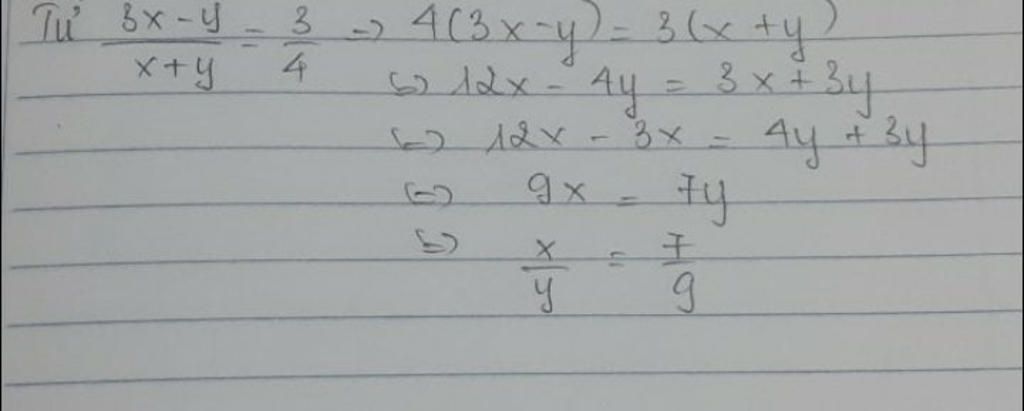 Từ (3x - y)/(x + y) = 3/4 => 4(3x - y) = 3(x + y)
<=> 12x - 4y = 3x + 3y
<=> 12x - 3x = 4y + 3y
<=> 9x = 7y
<=> x/y = 7/9